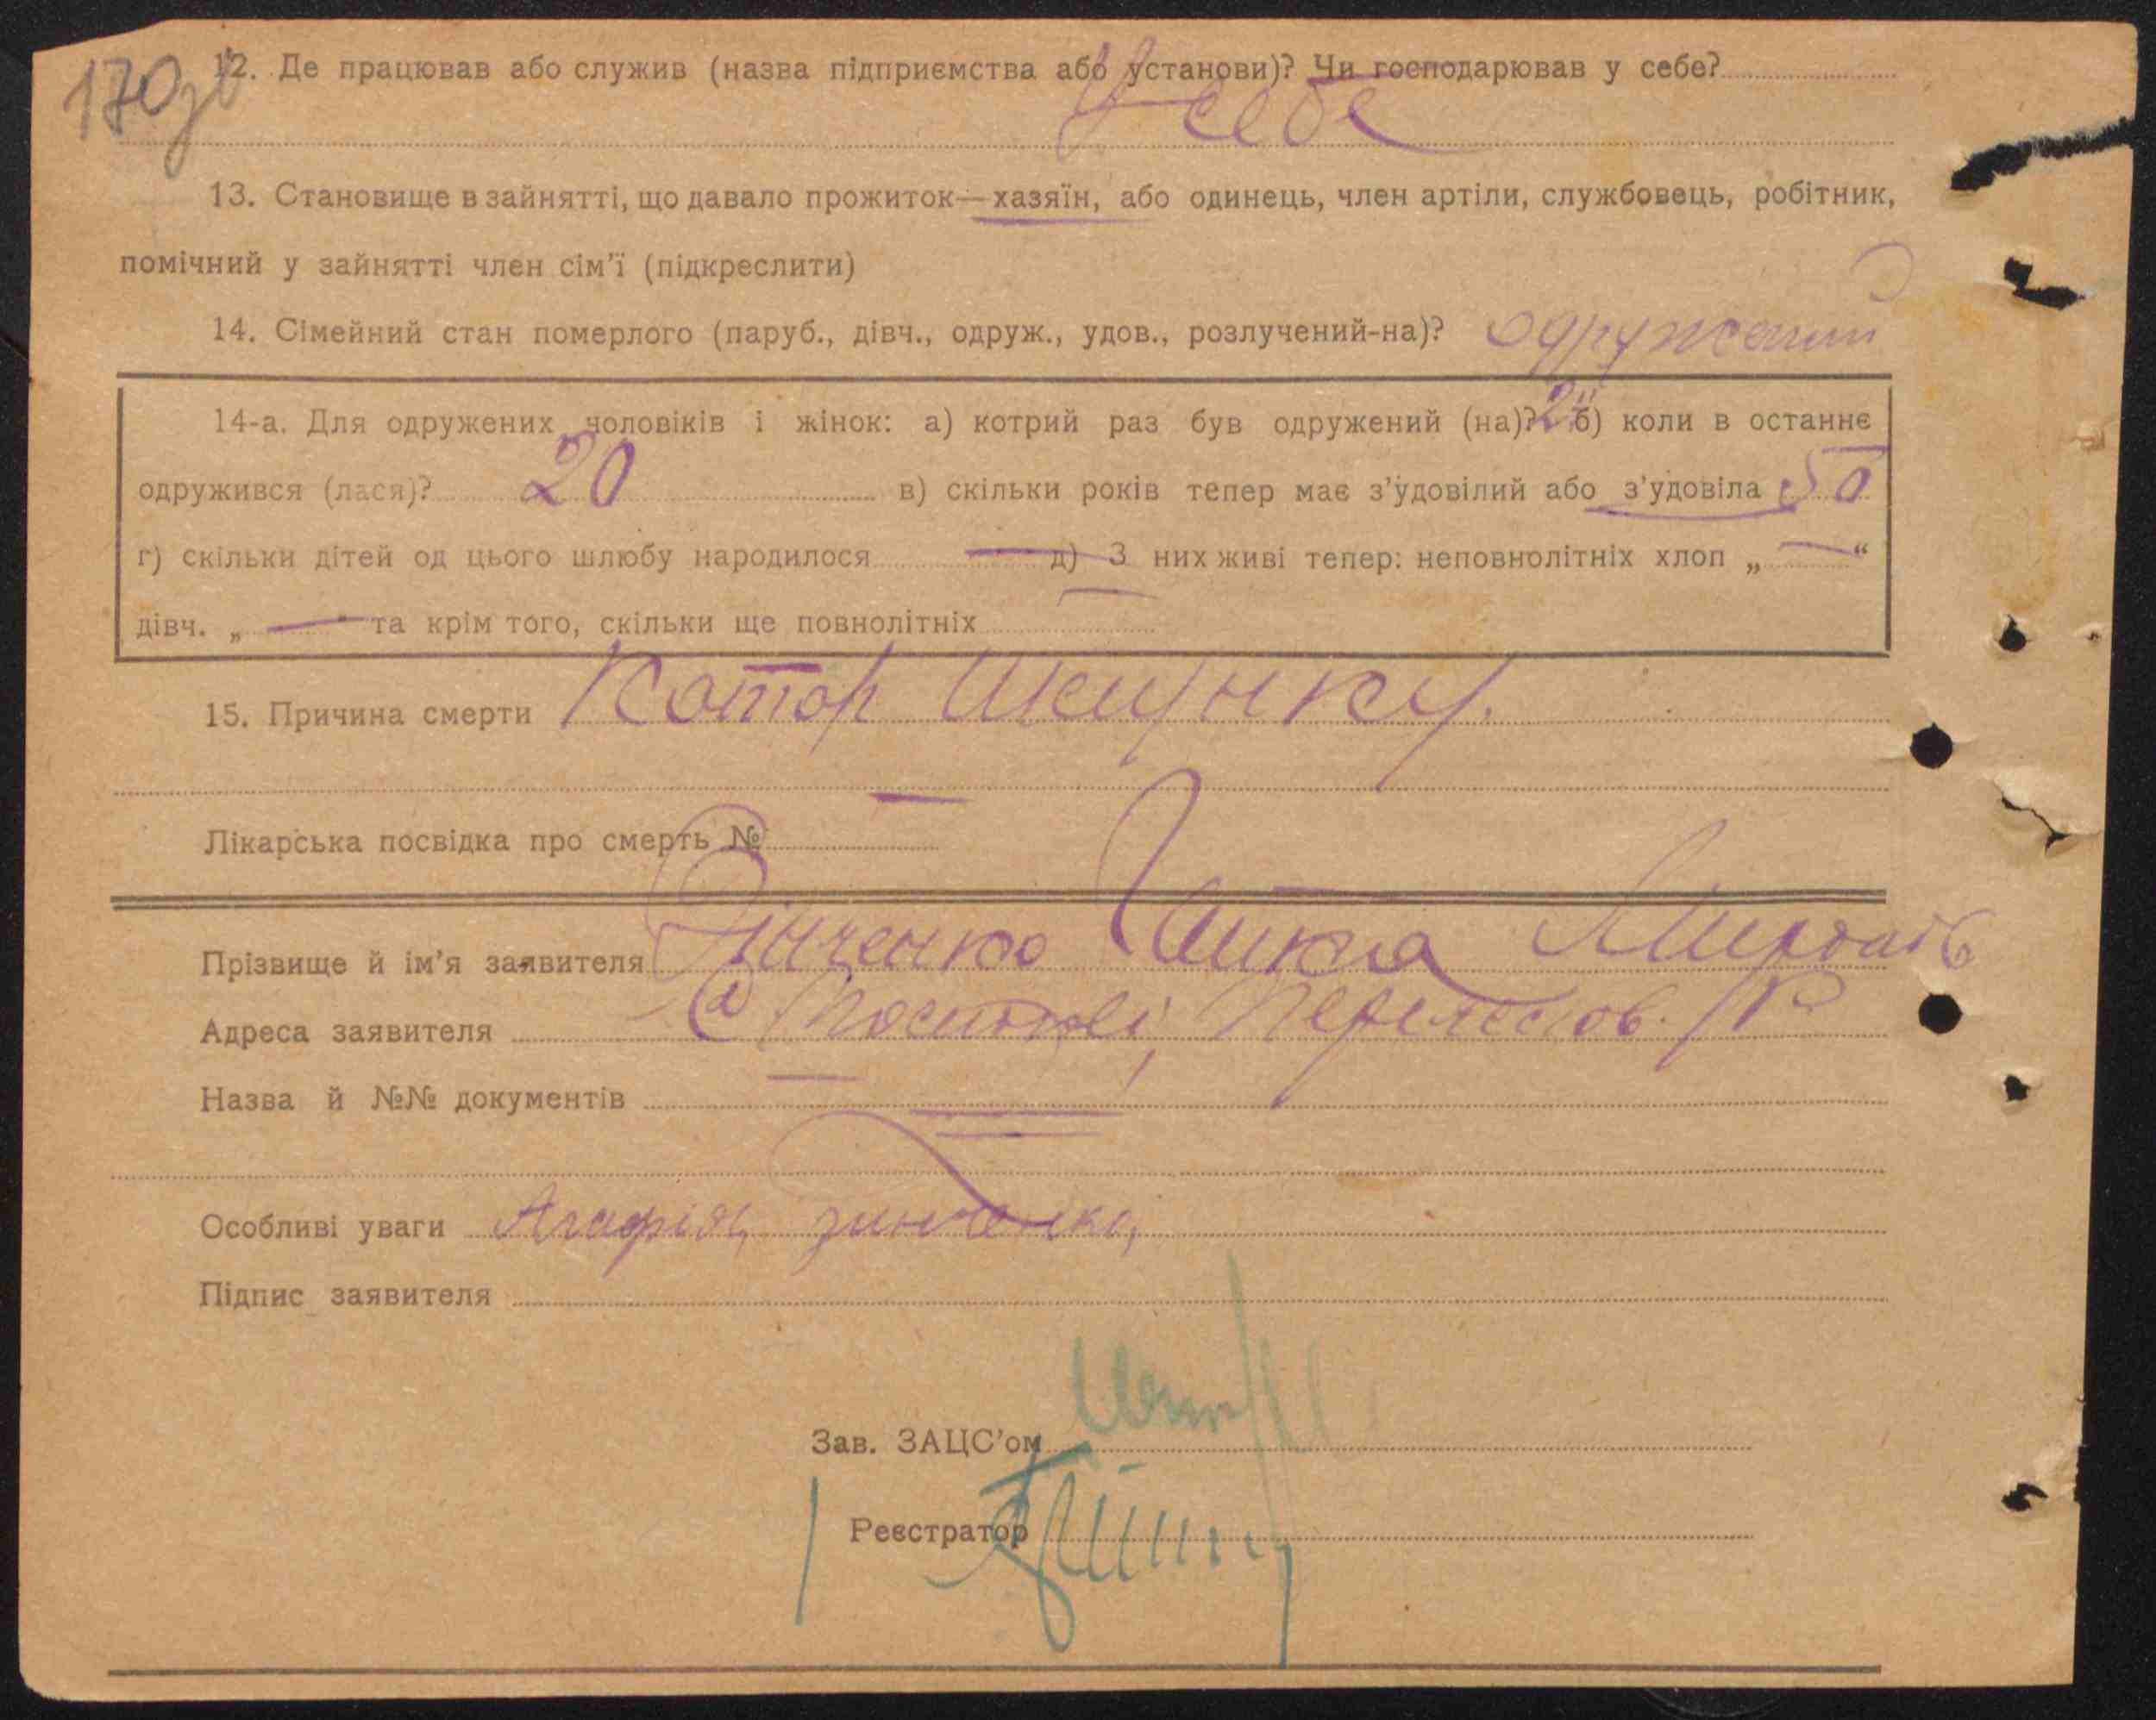 170зв
12. Де працював або служив (назва підприємства або установи)? Чи господарював у себе?
У себе
13. Становище в зайнятті, що давало прожиток—хазяїн, або одинець, член артіли, службовець, робітник,
помічний у зайнятті член сім'ї (підкреслити)
14. Сімейний стан померлого (паруб., дівч., одруж., удов., розлучений-на)? одружений
14-а. Для одружених чоловіків і жінок: а) котрий раз був одружений (на)? 2й б) коли в останнє
одружився (лася)? 20 в) скільки років тепер має з'удовілий або з'удовіла 50
г) скільки дітей од цього шлюбу народилося — д) З них живі тепер: неповнолітніх хлоп „ — “
дівч. „ — " та крім того, скільки ще повнолітніх
15. Причина смерти Катар шлунку.
Лікарська посвідка про смерть №
Прізвище й ім'я заявителя Зінченко
Адреса заявителя
Назва й №№ документів
Особливі уваги Агафія зинченко,
Підпис заявителя
Зав. ЗАЦС'ом
Реєстратор